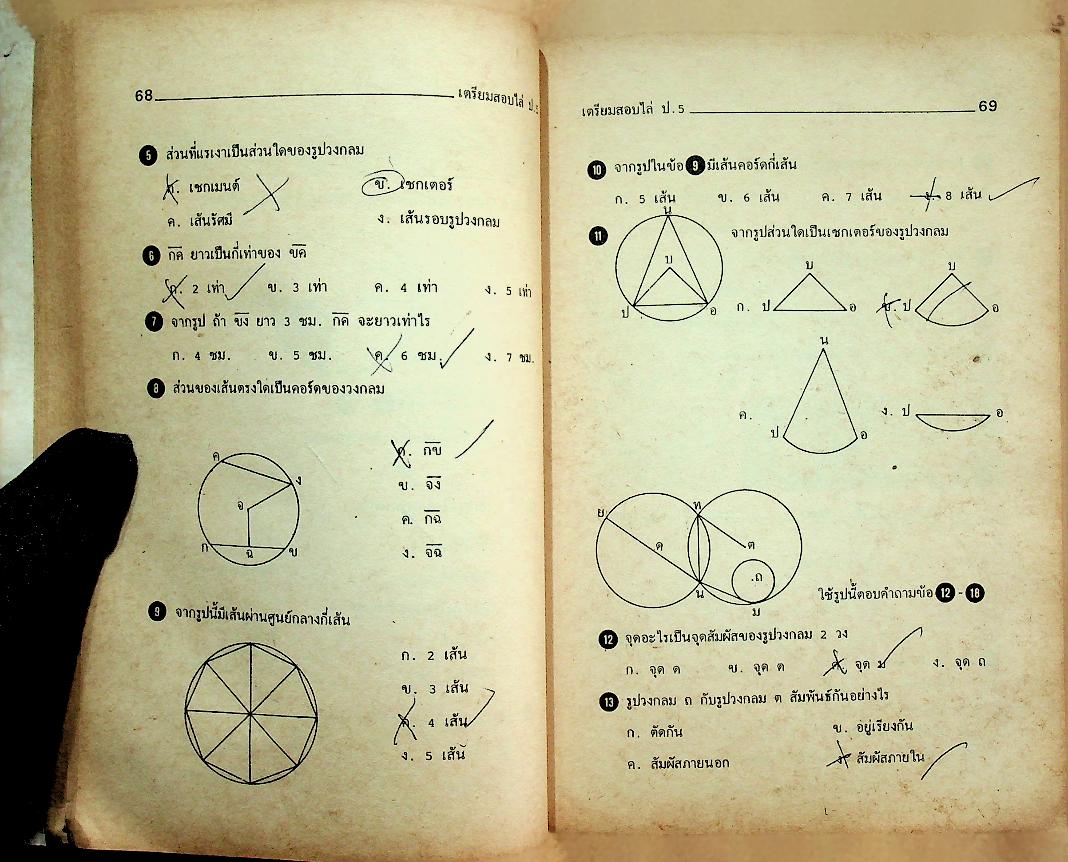 68 เตรียมสอบไล่ ป.5
5 ส่วนที่แรเงาเป็นส่วนใดของรูปวงกลม
ก. เซกเมนต์ ข. เซกเตอร์
ค. เส้นรัศมี ง. เส้นรอบรูปวงกลม
6 กค ยาวเป็นกี่เท่าของ ขค
ก. 2 เท่า ข. 3 เท่า ค. 4 เท่า ง. 5 เท่า
7 จากรูป ถ้า ขง ยาว 3 ซม. กค จะยาวเท่าไร
ก. 4 ซม. ข. 5 ซม. ค. 6 ซม. ง. 7 ซม.
8 ส่วนของเส้นตรงใดเป็นคอร์ดของวงกลม
ค ง จ ก ฉ ข
ก. กข
ข. จง
ค. กฉ
ง. จฉ
9 จากรูปนี้มีเส้นผ่านศูนย์กลางกี่เส้น
ก. 2 เส้น
ข. 3 เส้น
ค. 4 เส้น
ง. 5 เส้น
เตรียมสอบไล่ ป.5 69
10 จากรูปในข้อ 9 มีเส้นคอร์ดกี่เส้น
ก. 5 เส้น ข. 6 เส้น ค. 7 เส้น ง. 8 เส้น
11 จากรูปส่วนใดเป็นเซกเตอร์ของรูปวงกลม
น บ ป อ
ก. ป บ อ ข. ป บ อ
ค. น ป อ ง. ป อ
ย ด ท ต น ถ ม
ใช้รูปนี้ตอบคำถามข้อ 12 - 18
12 จุดอะไรเป็นจุดสัมผัสของรูปวงกลม 2 วง
ก. จุด ด ข. จุด ต ค. จุด ม ง. จุด ถ
13 รูปวงกลม ถ กับรูปวงกลม ต สัมพันธ์กันอย่างไร
ก. ตัดกัน ข. อยู่เรียงกัน
ค. สัมผัสภายนอก ง. สัมผัสภายใน